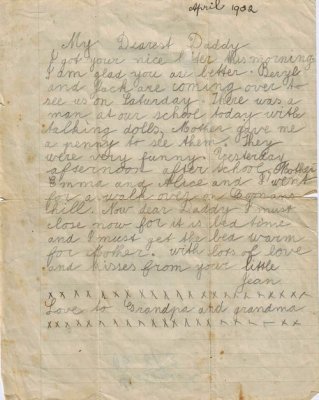 April 1932
My Dearest Daddy
I got your nice letter this morning
I am glad you are better. Beryl
and Jack are coming over to
see us on Saturday. There was a
man at our school today with
talking dolls, Mother gave me
a penny to see them. They
were very funny. Yesterday
afternoon after school, Mother
Emma and Alice and I went
for a walk over on
hill. Now dear Daddy I must
close now for it is bed time
and I must get the bed warm
for Mother. With lots of love
and kisses from your little
Jean
x x x x x x x x x x x x x x x x x x x x
Love to Grandpa and grandma
x x x x x x x x x x x x x x x x x x x